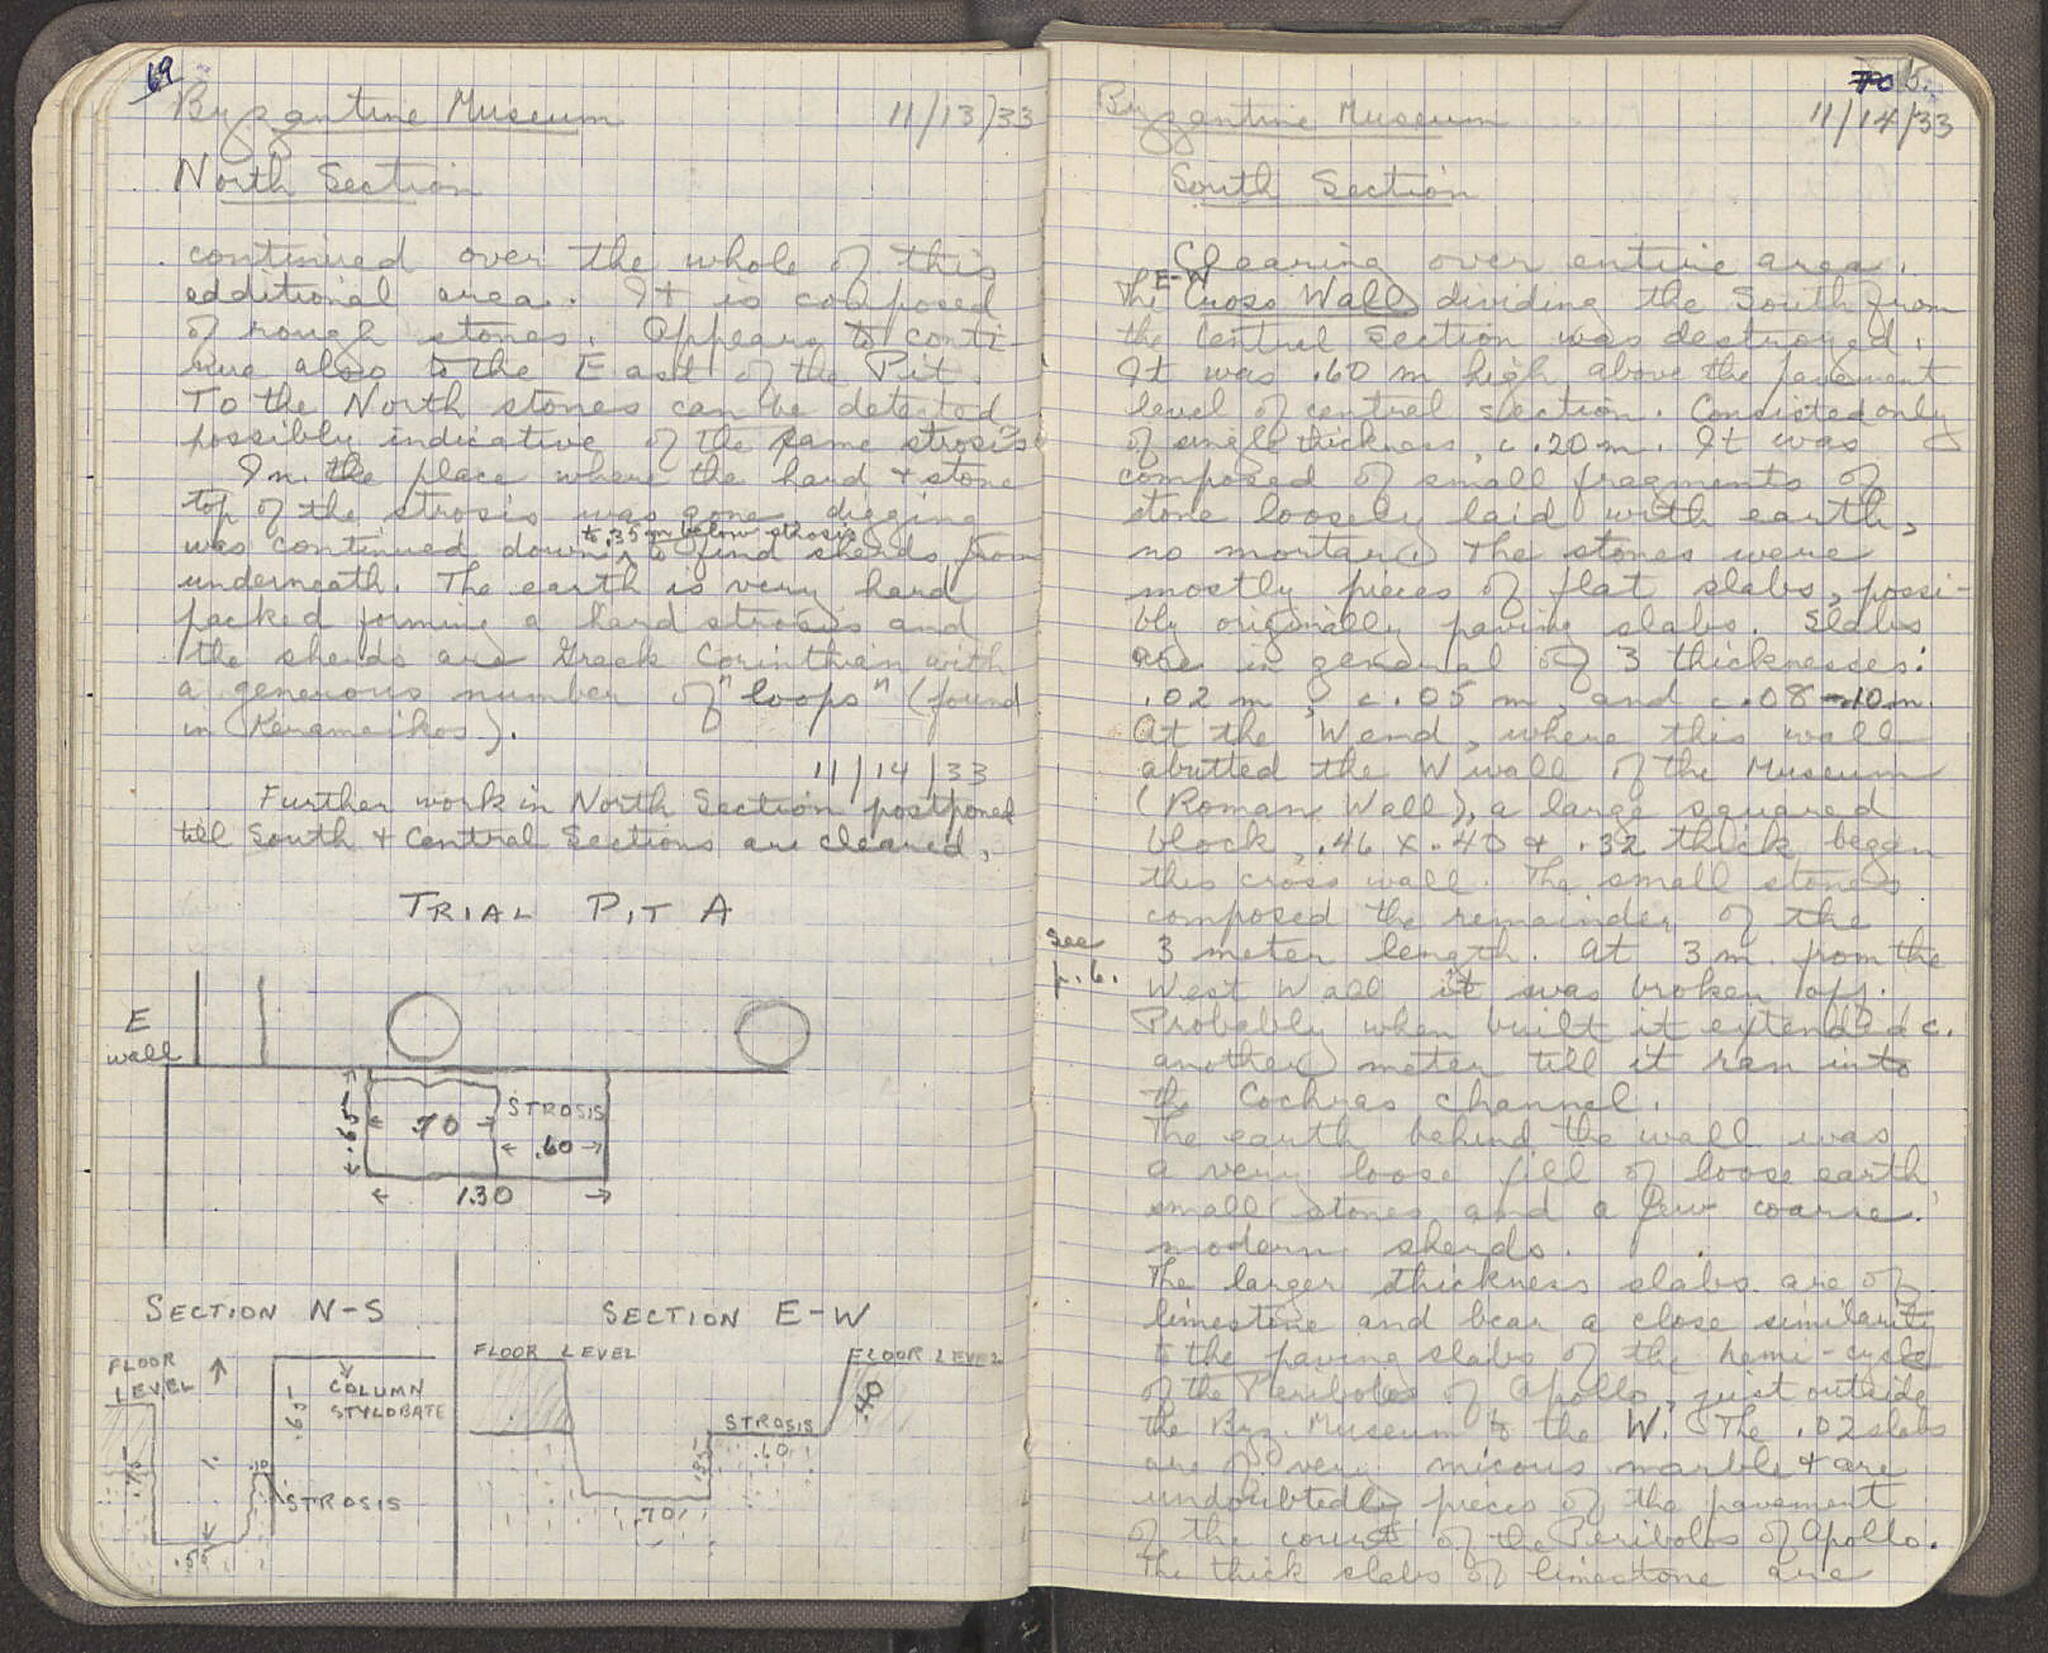 69
Byzantine Museum 11/13/33
North Section
continued over the whole of this
additional area. It is composed
of rough stones. Appears to conti-
nue also to the East of the Pit.
To the North stones can be detected
possibly indicative of the same strosis.
In the place where the hard + stone
top of the strosis was gone digging
to .35 m below strosis
was continued down to find sherds from
underneath. The earth is very hard
packed forming a hard strosis and
the sherds are Greek Corinthian with
a generous number of "loops" (found
in Kerameikos).
11/14/33
Further work in North Section postponed
till South + Central Sections are cleared.
TRIAL PIT A
E
wall
.65
.70
STROSIS
.60
1.30
SECTION N-S
FLOOR
LEVEL
COLUMN
STYLOBATE
.65
.75
.10
STROSIS
.55
SECTION E-W
FLOOR LEVEL
FLOOR LEVEL
.40
STROSIS
.60
.35
.70
70 5.
Byzantine Museum 11/14/33
South Section
Clearing over entire area.
E-W
The Cross Wall dividing the South from
the Central Section was destroyed.
It was .60 m high above the pavement
level of central section. Consisted only
of single thickness, c .20 m. It was
composed of small fragments of
stone loosely laid with earth,
no mortar. The stones were
mostly pieces of flat slabs, possi-
bly originally paving slabs. Slabs
are in general of 3 thicknesses:
.02 m, c. .05 m, and c .08-.10 m.
At the W end, where this wall
abutted the W wall of the Museum
(Roman Wall), a large squared
block, .46 x .40 + .32 thick began
this cross wall. The small stones
composed the remainder of the
see
p. 6.
3 meter length. At 3 m from the
West Wall it was broken off.
Probably when built it extended c.
another meter till it ran into
the Cochras channel.
The earth behind the wall was
a very loose fill of loose earth,
small stones and a few coarse
modern sherds.
The larger thickness slabs are of
limestone and bear a close similarity
to the paving slabs of the hemi-cycle
of the Peribolos of Apollo, just outside
the Byz. Museum to the W. The .02 slabs
are of very micous marble + are
undoubtedly pieces of the pavement
of the court of the Peribolos of Apollo.
The thick slabs of limestone are